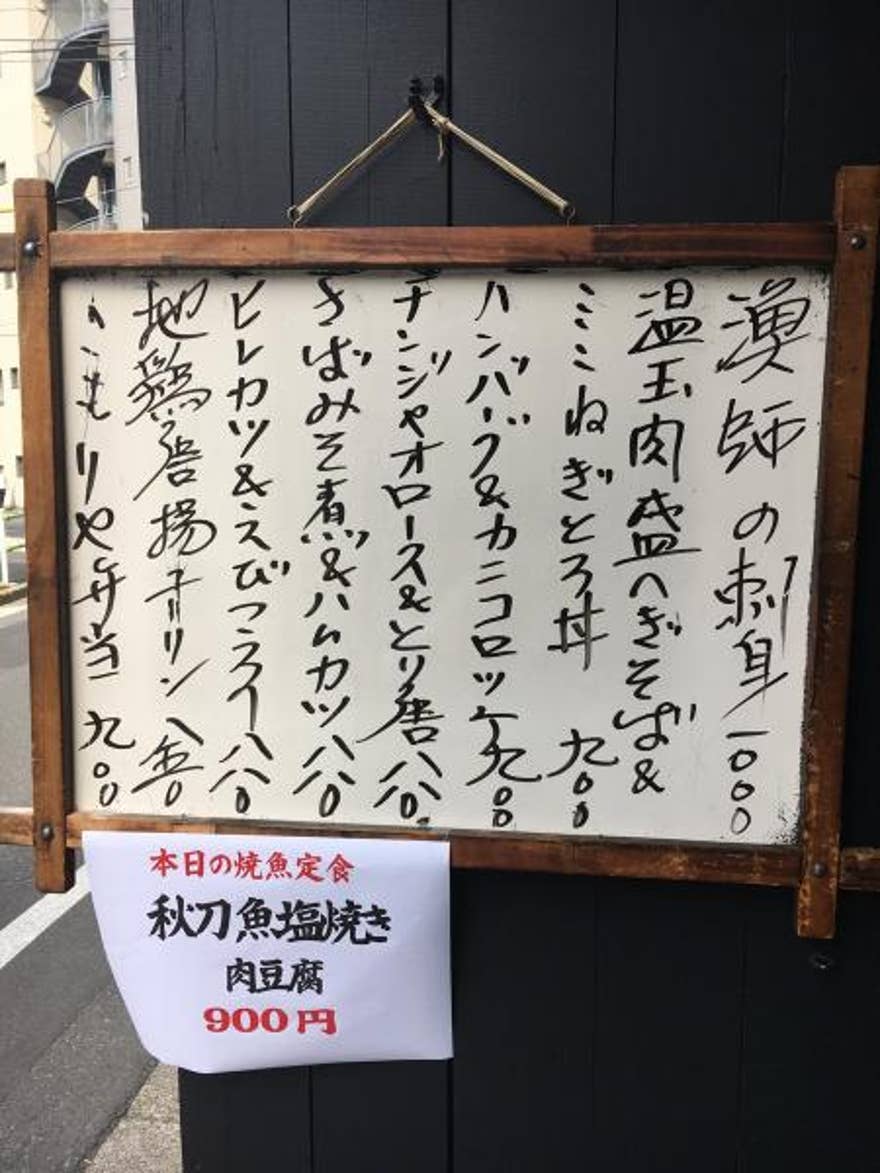 漁師の刺身一〇〇〇
温玉肉盛へぎそば&
ミニねぎとろ丼 九〇〇
ハンバーグ&カニコロッケ九〇〇
チンジャオロース&とり唐八八〇
さばみそ煮&ハムカツ八八〇
ヒレカツ&えびフライ八八〇
地鶏唐揚チーリン八五〇
こもりや弁当 九〇〇
本日の焼魚定食
秋刀魚塩焼き
肉豆腐
900円